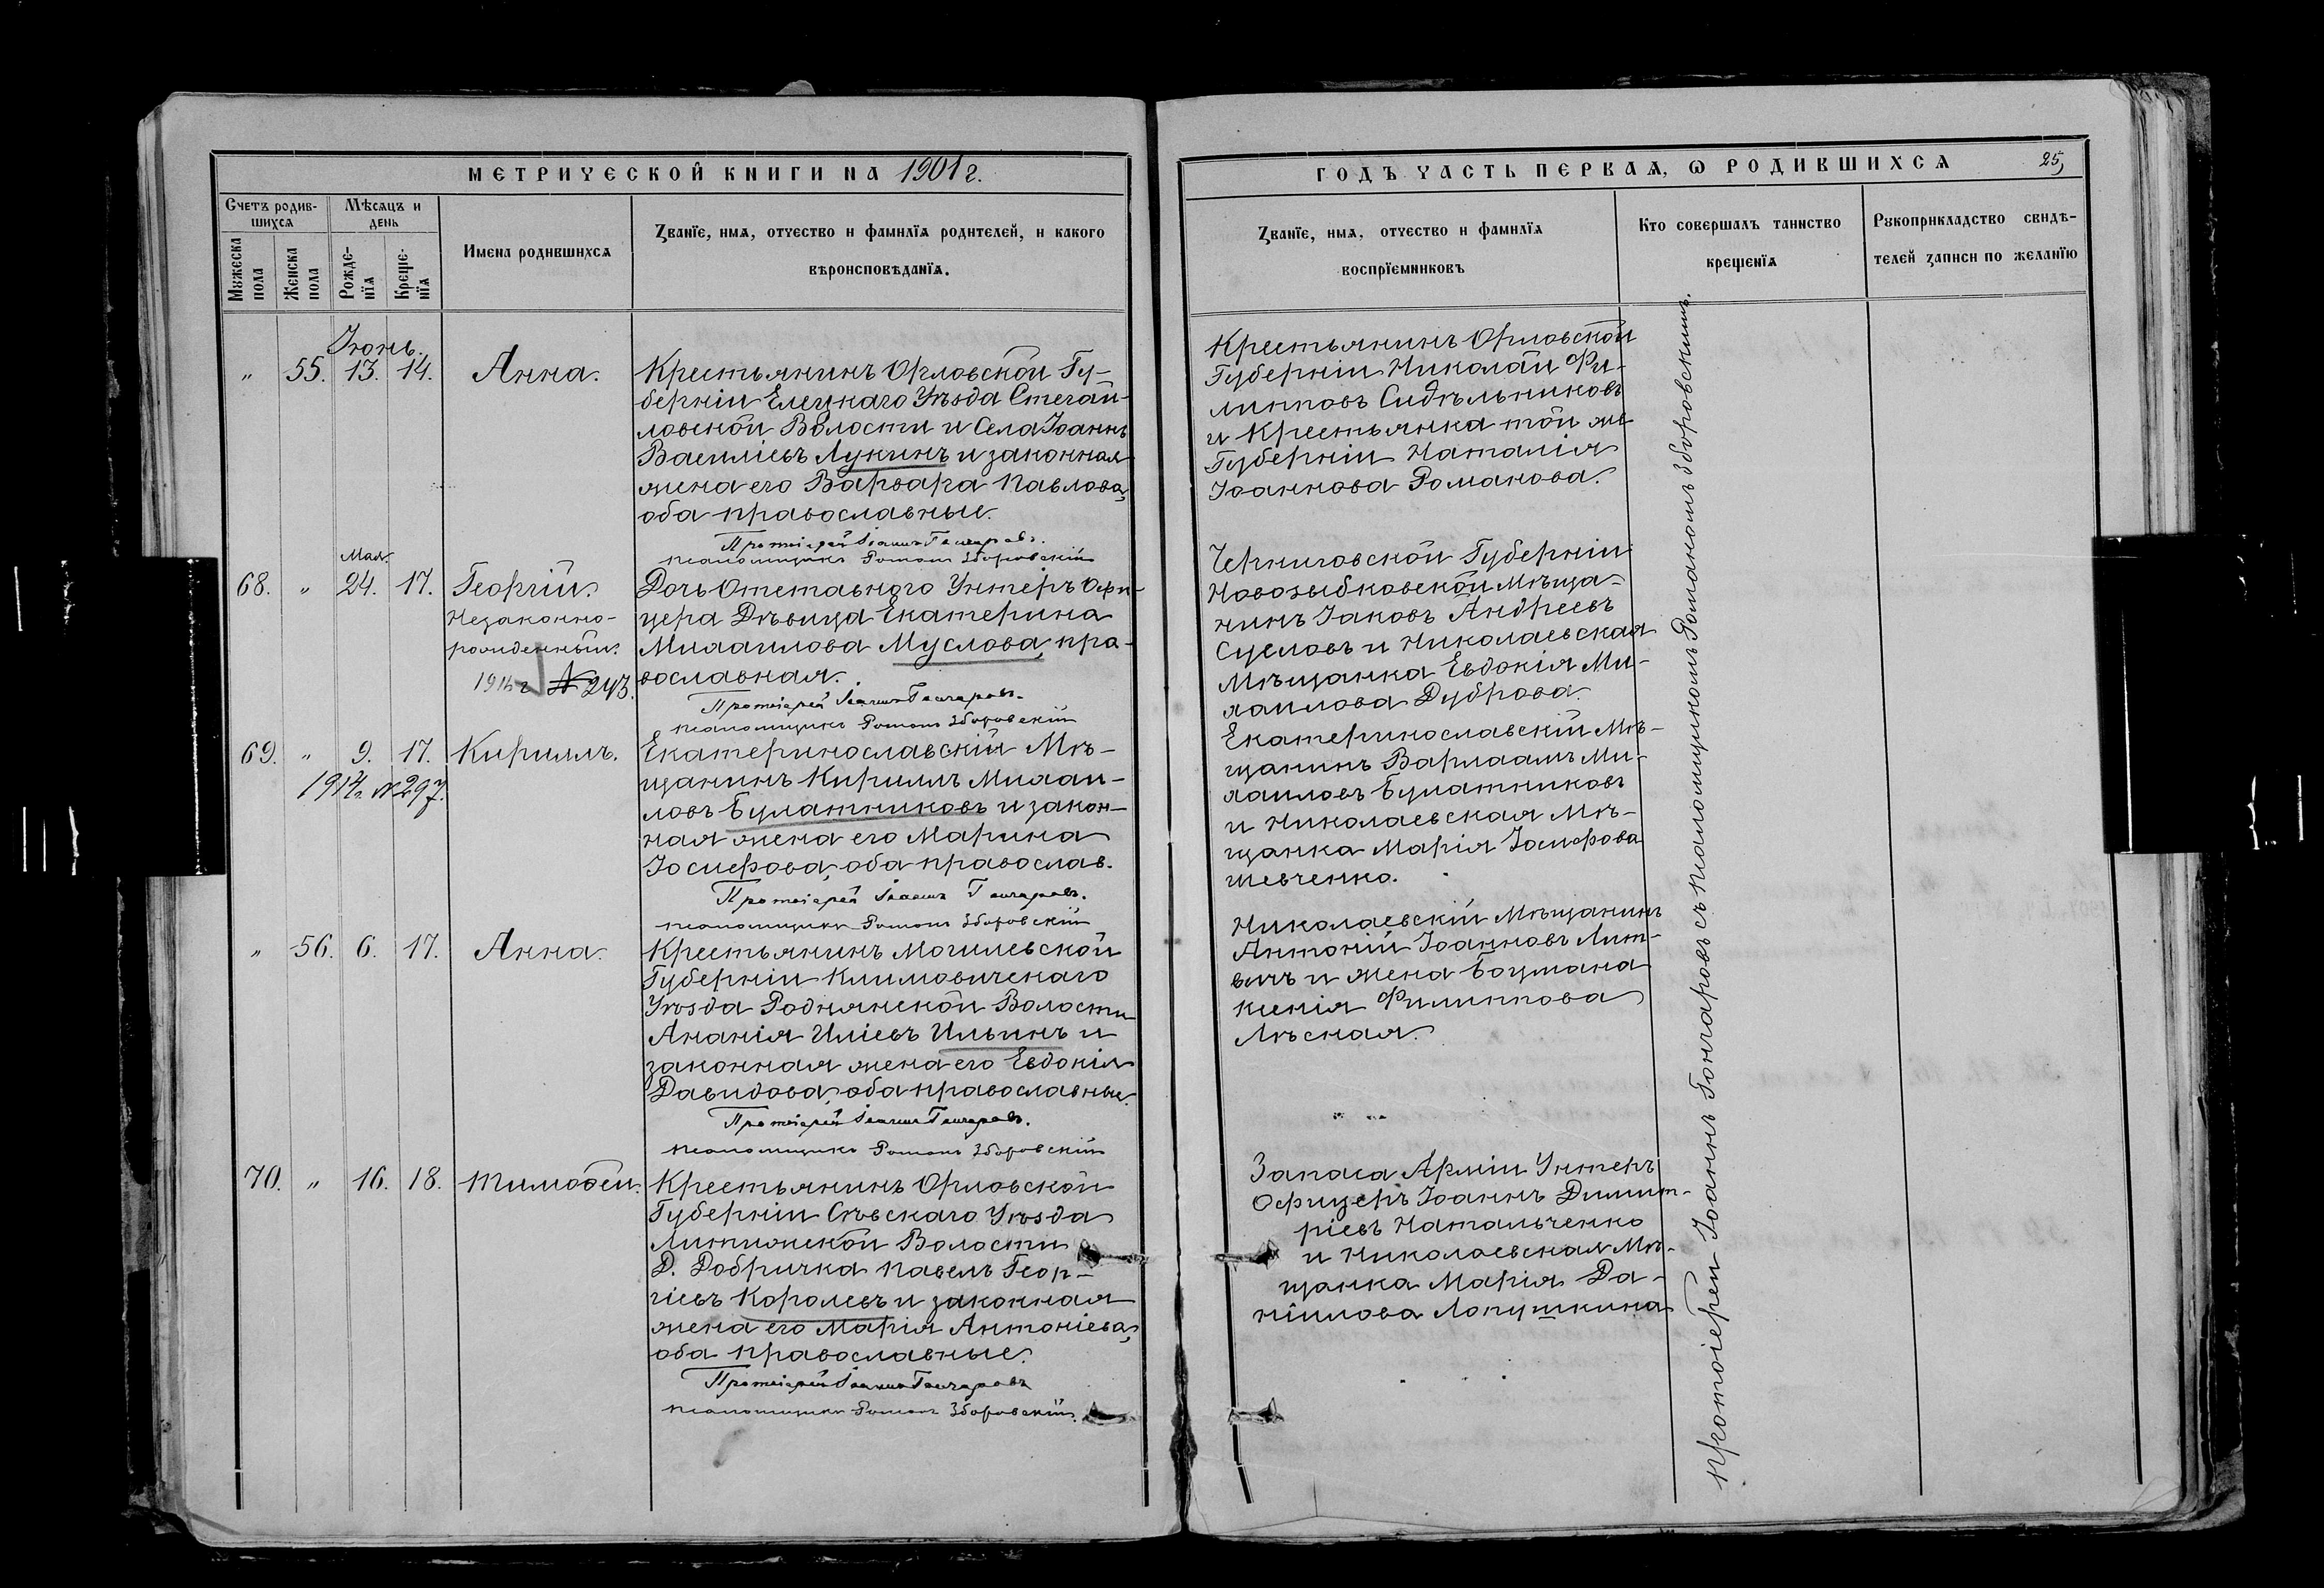 МЕТРИЧЕСКОЙ КНИГИ НА 1901 г.
Счетъ родив-
шихся
Мѣсяцъ и
день
Мужеска
пола
Женска
пола
Рожде-
нїя
Креще-
нїя
Имена родившихся
Званїе, имя, отчество и фамилїя родителей, и какого
вѣроисповѣданїя.
Іюнь.
" 55. 13. 14. Анна.
Крестьянинъ Орловской Гу-
берніи Елецкаго Уѣзда Стегай-
ловской Волости и Села Іоаннъ
Василіевъ Лукинъ и законная
жена его Варвара Павлова,
оба православные.
Протоіерей Іоаннъ Гончаровъ.
Псаломщикъ Романъ Зборовскій
Мая.
68. " 24. 17. Георгій.
Незаконно-
рожденный.
1914 г. № 243.
Дочь Отставного Унтеръ Офи-
цера Дѣвица Екатерина
Михаилова Муслова, пра-
вославная.
Протоіерей Іоаннъ Гончаровъ.
Псаломщикъ Романъ Зборовскій
69. " 9. 17. Кириллъ.
1914г. №297.
Екатеринославскій Мѣ-
щанинъ Кириллъ Михаи-
ловъ Булатниковъ и закон-
ная жена его Марина
Іосифова, оба православ.
Протоіерей Іоаннъ Гончаровъ.
Псаломщикъ Романъ Зборовскій
" 56. 6. 17. Анна.
Крестьянинъ Могилевской
Губерніи Климовичскаго
Уѣзда Роднянской Волости
Ананія Иліевъ Ильинъ и
законная жена его Евдокія
Давидова, оба православные.
Протоіерей Іоаннъ Гончаровъ.
Псаломщикъ Романъ Зборовскій
70. " 16. 18. Тимоѳей.
Крестьянинъ Орловской
Губерніи Сѣвскаго Уѣзда
Литижской Волости
Д. Добричка Павелъ Геор-
гіевъ Королевъ и законная
жена его Марія Антоніева,
оба православные.
Протоіерей Іоаннъ Гончаровъ
Псаломщикъ Романъ Зборовскій.
ГОДЪ ЧАСТЬ ПЕРВАЯ, Ѡ РОДИВШИХСЯ
25
Званїе, имя, отчество и фамилїя
воспрїемниковъ
Кто совершалъ таинство
крещенїя
Рукоприкладство свидѣ-
телей записи по желанїю
Крестьянинъ Орловской
Губерніи Николай Фи-
липповъ Сидѣльниковъ
и Крестьянка той же
Губерніи Наталія
Іоаннова Романова.
Черниговской Губерніи
Новозыбковской Мѣща-
нинъ Іаковъ Андреевъ
Сусловъ и Николаевская
Мѣщанка Евдокія Ми-
хаилова Дуброва.
Екатеринославскій Мѣ-
щанинъ Варлаамъ Ми-
хаиловъ Булатниковъ
и Николаевская Мѣ-
щанка Марія Іосифова
Шевченко.
Николаевскій Мѣщанинъ
Антоній Іоанновъ Лит-
вичъ и жена Боцмана
Ксенія Филиппова
Лѣсная.
Запаса Арміи Унтеръ
Офицеръ Іоаннъ Димит-
ріевъ Натальченко
и Николаевская Мѣ-
щанка Марія Да-
ніилова Лопушкина
Протоіерей Іоаннъ Гончаровъ съ псаломщикомъ Романомъ Зборовскимъ.